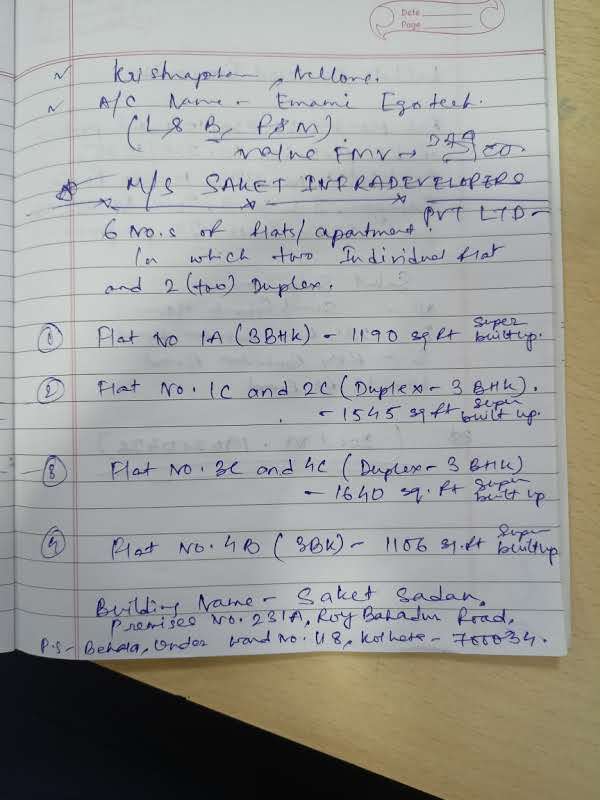 Date
Page
Krishnapatnam, Nellore.
A/C Name - Emami Egrotech.
(L & B, P&M)
Value FMV →
M/S SAKET INFRADEVELOPERS
PVT LTD -
6 No.s of flats/apartment.
In which two Individual flat
and 2 (two) Duplex.
① Flat No 1A (3BHK) - 1190 sq ft Super built up.
② Flat No. 1C and 2C (Duplex - 3 BHK).
- 1545 sq ft Super built up.
③ Flat No. 3C and 4C (Duplex - 3 BHK)
- 1640 sq. ft Super built up
④ Flat No. 4B (3BK) - 1106 sq. ft Super built up
Building Name - Saket Sadan,
Premises No. 231A, Roy Bahadur Road,
P.S - Behala, Under ward No. 118, Kolkata - 700034.